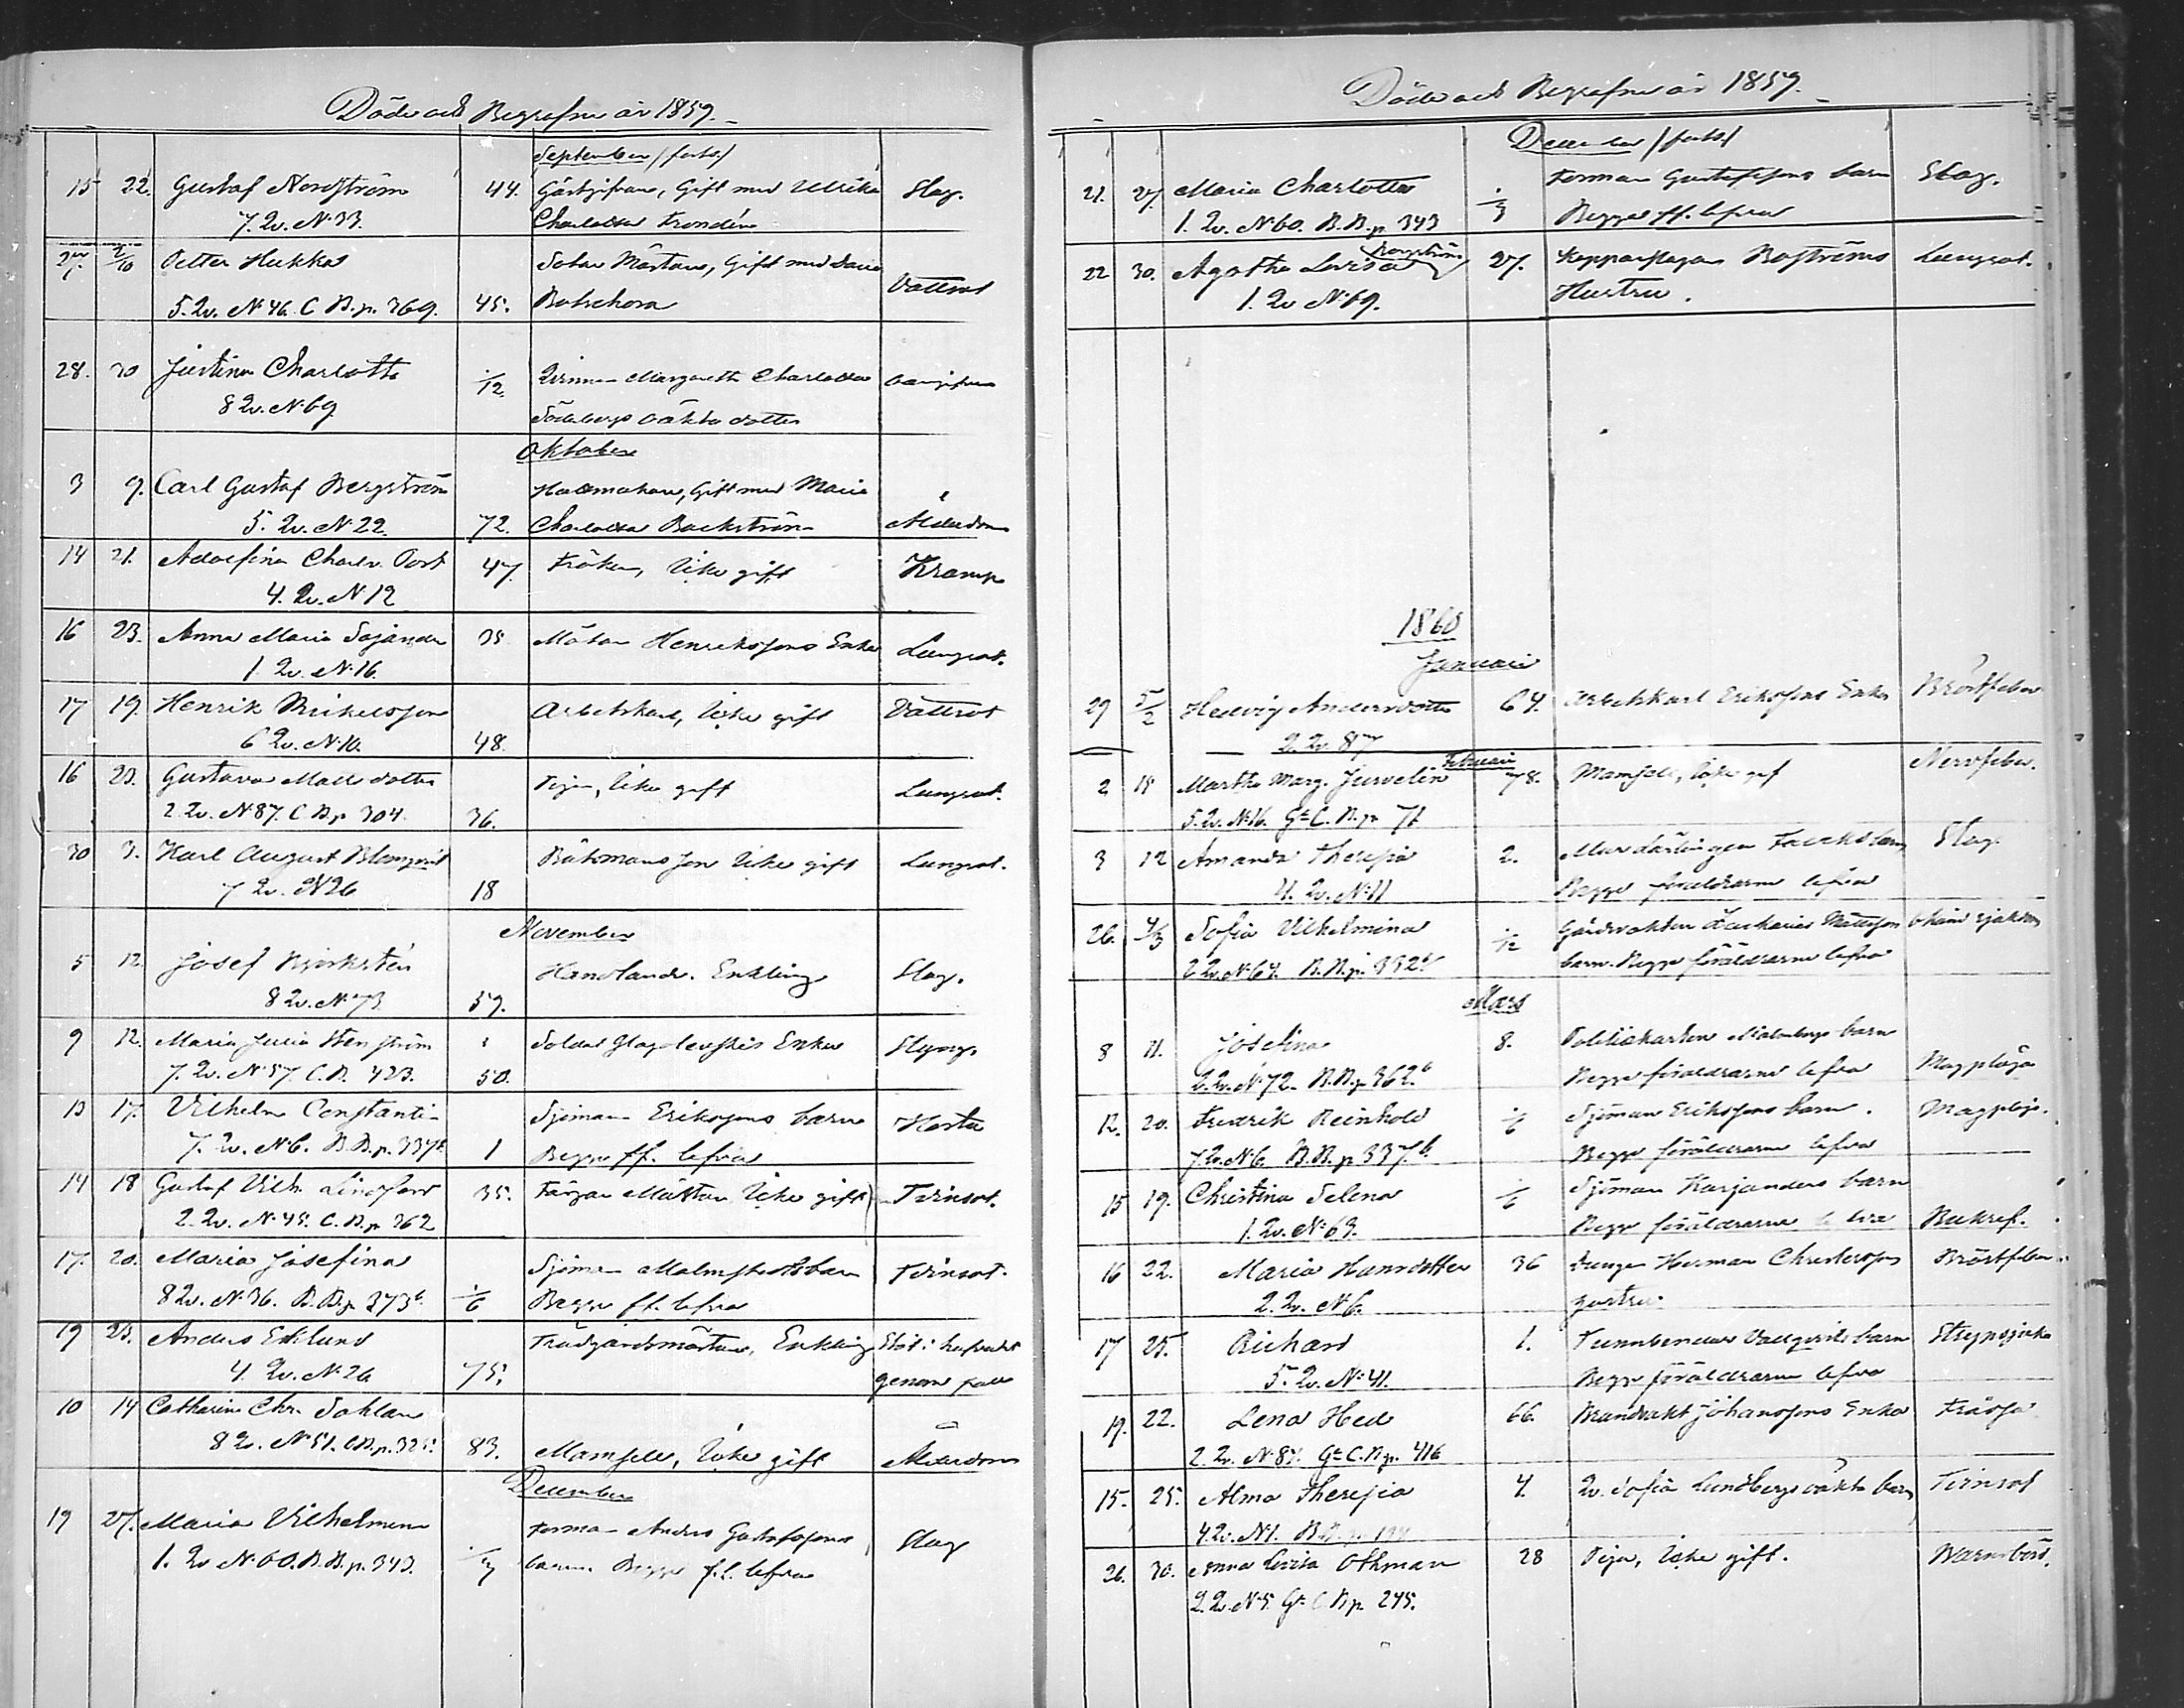 Döde och Begrafne år 1859.
September /forts./
15 22. Gustaf Nordström 44. Gästgifvare, Gift med Ulrika Slag.
7. Qv. N:33. Charlotta Frondén
27. 2/10 Petter Hukka Gift med
5. Qv. N:46. C. B. p. 369. 45. Vattsot
28. 30 Justina Charlotta 1/12 Qvinnan Margaretha Charlotta
8 Qv. N:69 Söderbergs oäkta dotter
Oktober
3 9. Carl Gustaf Bergström Hattmakare, Gift med Maria
5. Qv. N:22. 72. Charlotta Backström Ålderdom
14 21. Adolfina Charl. Oort 47. Fröken, Icke gift Kramp
4. Qv. N:12
16 23. Anna Maria Sajander 35 Henrikssons Enka Lungsot.
1. Qv. N:16.
17 19. Henrik Mickelsson Arbetskarl, Icke gift Vattsot
6 Qv. N:10. 48.
16 23. Gustava Matts dotter Piga, Icke gift Lungsot.
2. Qv. N:87. C. B. p. 304. 36.
30 3. Karl August Blomqvist Båtsmans son Icke gift Lungsot.
7 Qv. N:26 18
November
5 12. Josef Björkstén Handlande. Enkling Slag.
8 Qv. N:73. 59.
9 12. Maria Julia Stenström Soldat Enka
7. Qv. N:57. C. B. 423. 50.
13 17. Vilhelm Constantin Sjöman Erikssons barn Hosta
7. Qv. N:6. B. B. p. 337b 1 Begge ff. lefva
14 18 Gustaf Vilh. Lindfors 35. Färgare Mästare Icke gift Tvinsot.
2. Qv. N:45. C. B. p. 362
17. 20. Maria Josefina Sjöman barn Tvinsot.
8 Qv. N:36. B. B. p. 373b. 1/6 Begge ff. lefva
19 23. Anders Eklund Trädgårdsmästare, Enkling Stöt i hufvudet
4. Qv. N:26 75. genom fall
10 14 Catharina Chr. Sohlan
8 Qv. N:51. C.B. p. 325. 83. Mamsell, Icke gift Ålderdom
December
19 27. Maria Vilhelmina Forman Anders Gustafssons Slag
1. Qv. N:60. B. B. p. 343. 1/3 barn. Begge f.f. lefva
Döde och Begrafne år 1859.
December /forts/
21. 27. Maria Charlotta 1/3 Forman Gustafssons barn Slag.
1. Qv. N:60. B. B. p. 343 Begge ff. lefva
22 30. Agatha Lovisa 27. Kopparslagare Boströms Lungsot.
1. Qv N:69. Hustru.
1860
Januari
29 5/2 Hedvig Andersdotter 64. Arbetskarl Erikssons Enka Bröstfeber
2. Qv. 87
Februari
2 18 Martha Marg. Juvelin 78. Mamsell, Icke gift Nervfeber.
5. Qv. N:16. G:a C. B. p. 71
3 12 Amanda Theresia 2. Slag
4. Qv. N:11 Begge föräldrarne lefva
26. 4/3 Sofia Vilhelmina 1/12 Gårdvakten Zacharias Mattsson okänd sjukdom
2 Qv. N:64. B. B. p. 332b barn. Begge föräldrarne lefva
Mars
8 11. Josefina 8. Malmbergs barn
2. Qv. N:72. B. B. p. 362.b Begge föräldrarne lefva Magplåga
12. 20. Fredrik Reinhold 1/6 Sjöman Erikssons barn. Magplåga.
7 Qv. N:6. B. B. p. 337.b Begge föräldrarne lefva
15 19. Christina Selena 1/6 Sjöman Karjanders barn
1. Qv. N:69. Begge föräldrarne lefva Bukref.
16 22. Maria Hansdotter 36 Drengen Herman Christerssons Bröstfeber
2. Qv. N:6. hustru.
17 25. Richard 1. Tunnbindare Vallqvists barn Strypsjuka
5. Qv. N:41. Begge föräldrarne lefva
19. 22. Lena Hed 66. Brandvakt Johanssons Enka Frossa
2. Qv. N:87. G:a C. B. p. 416
15. 25. Alma Theresia 4. Qv. Sofia Lundbergs oäkta barn Tvinsot
4. Qv. N:1.
26. 30. Anna Lovisa Othman 28 Piga, Icke gift. Barnsbörd.
2. Qv. N:5. G:a C. B. p. 245.